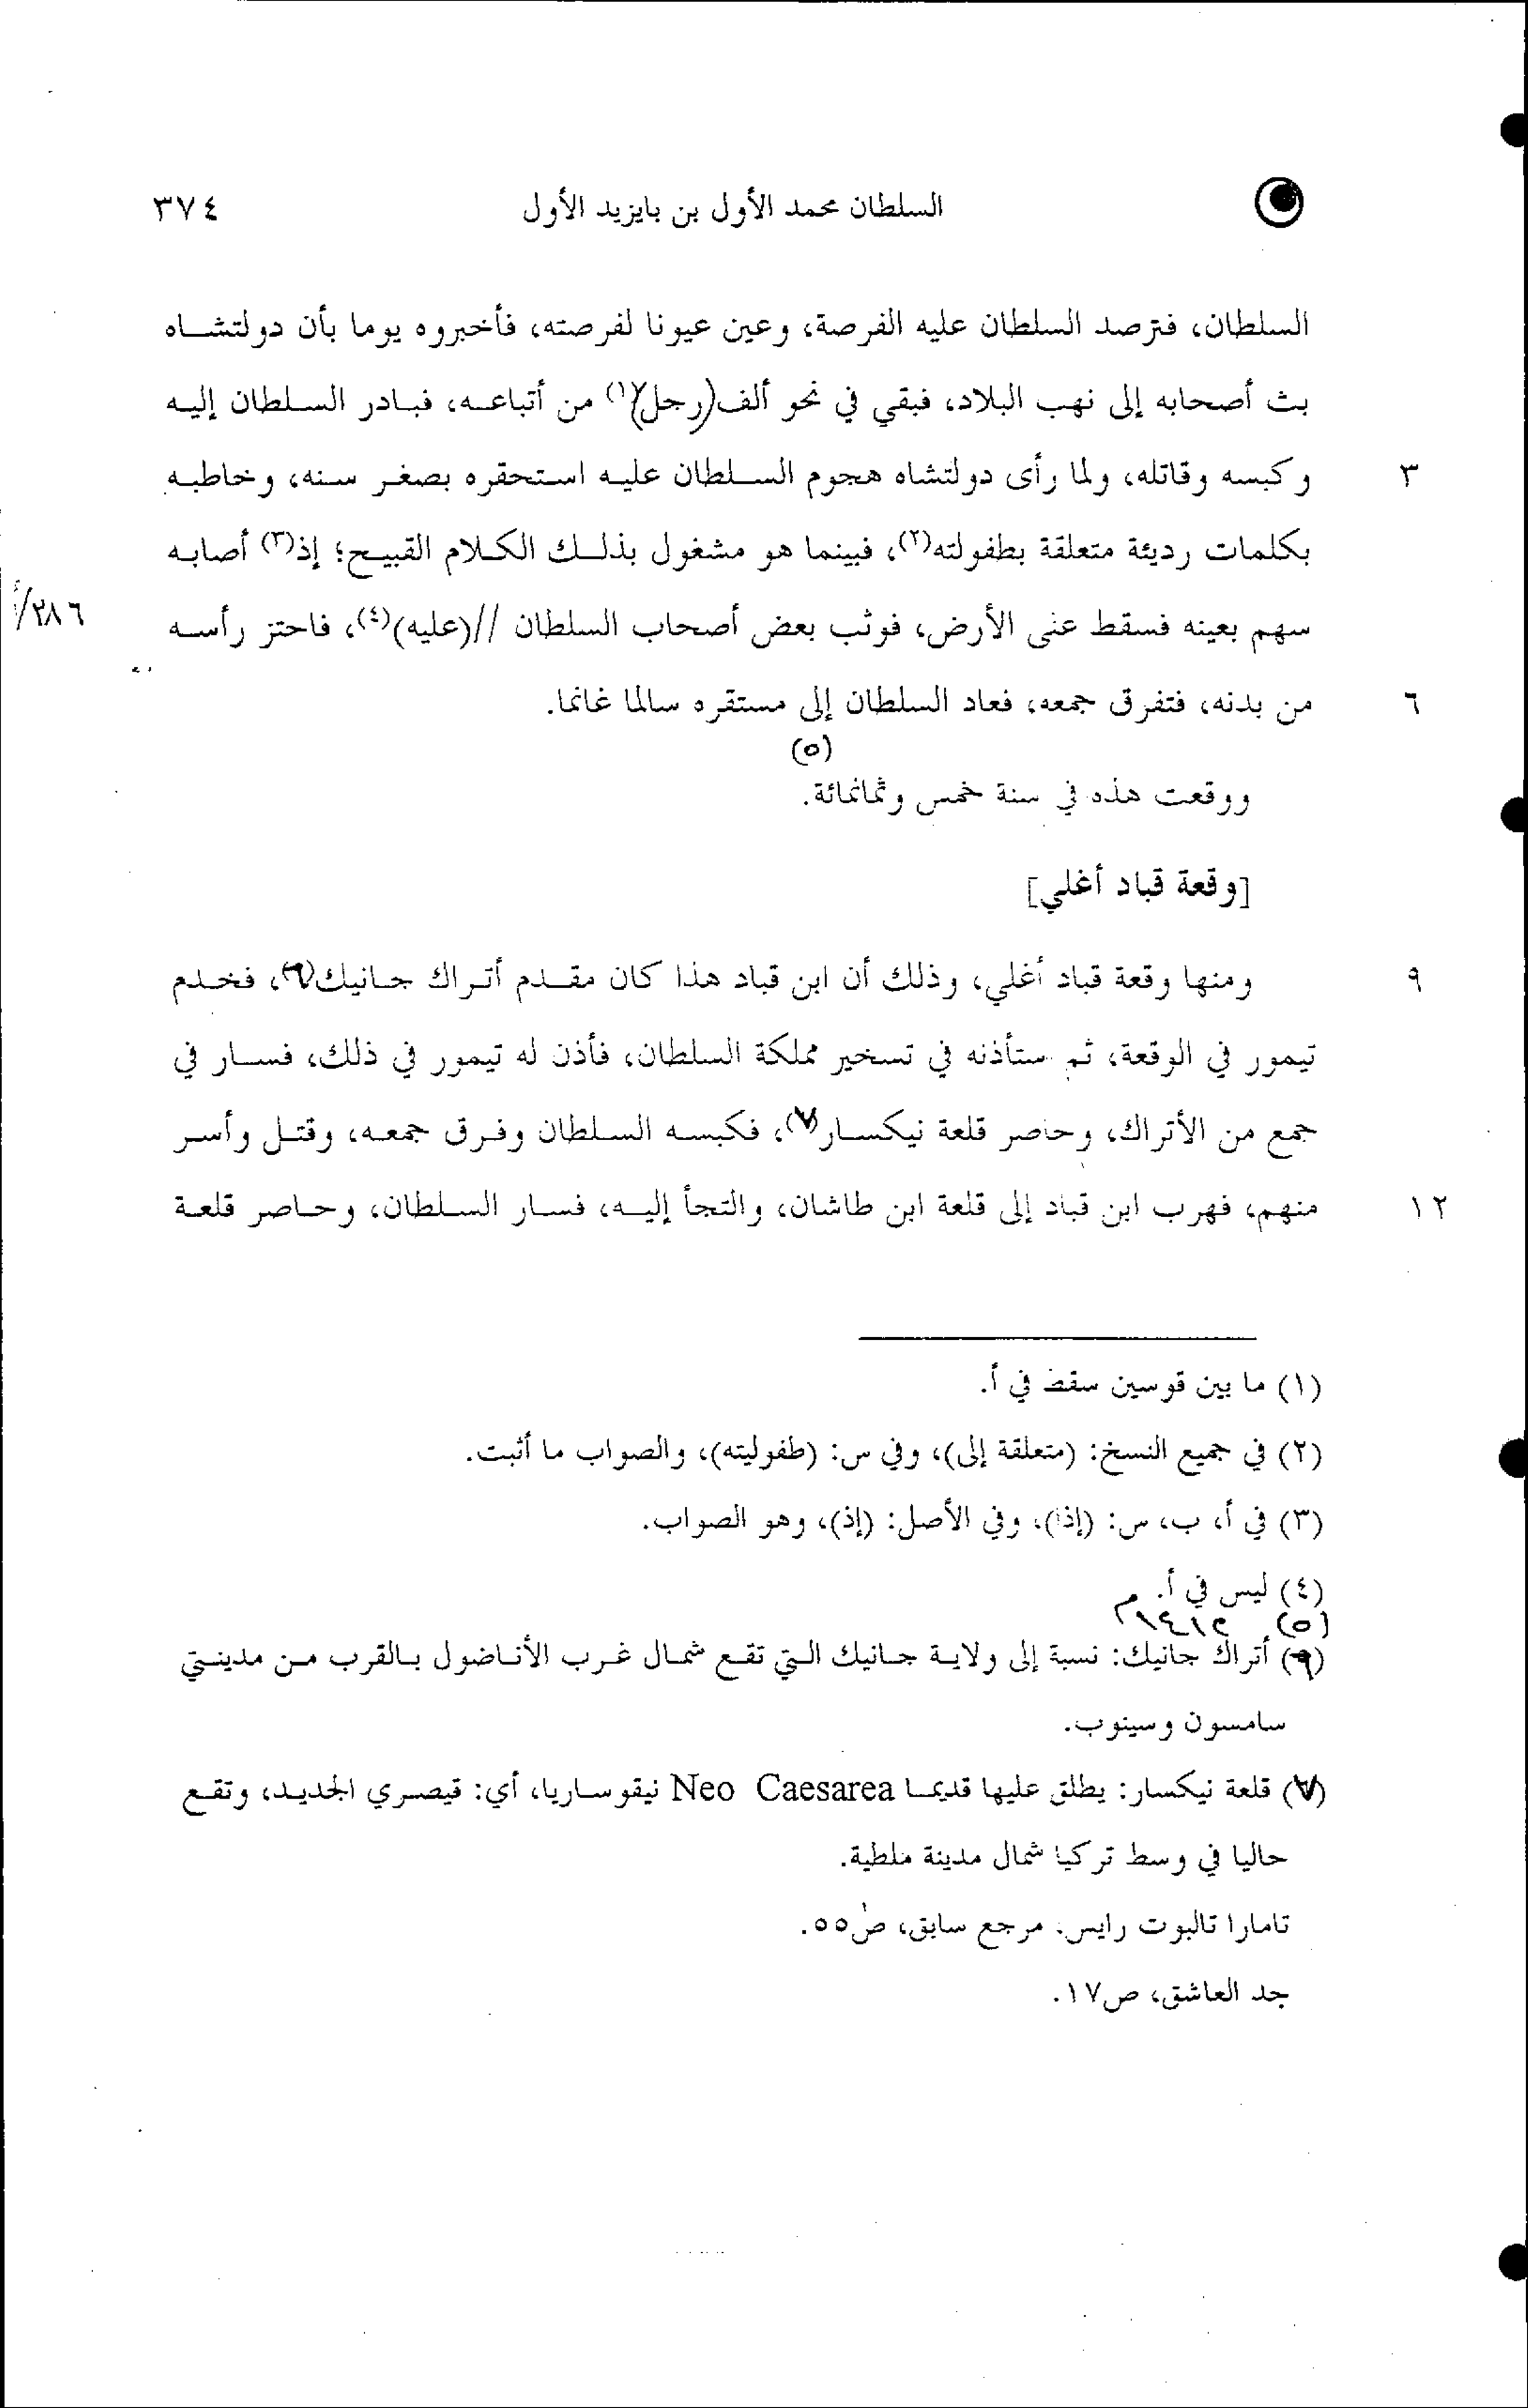 السلطان محمد الأول بن بايزيد الأول ٣٧٤
السلطان، فترصد السلطان عليه الفرصة، وعين عيونا لفرصته، فأخبروه يوما بأن دولتشاه
بث أصحابه إلى نهب البلاد، فبقي في نحو ألف (رجل)(١) من أتباعه، فبادر السلطان إليه
٣ وكبسه وقاتله، ولما رأى دولتشاه هجوم السلطان عليه استحقره بصغر سنه، وخاطبه
بكلمات رديئة متعلقة بطفولته(٢)، فبينما هو مشغول بذلك الكلام القبيح؛ إذ(٣) أصابه
سهم بعينه فسقط على الأرض، فوثب بعض أصحاب السلطان //(عليه)(٤)، فاحتز رأسه ٢٨٦/أ
٦ من بدنه، فتفرق جمعه، فعاد السلطان إلى مستقره سالما غانما.
ووقعت هذه في سنة خمس وثمانمائة.(٥)
[وقعة قباد أغلي]
٩ ومنها وقعة قباد أغلي، وذلك أن ابن قباد هذا كان مقدم أتراك جانيك(٦)، فخدم
تيمور في الوقعة، ثم ستأذنه في تسخير مملكة السلطان، فأذن له تيمور في ذلك، فسار في
جمع من الأتراك، وحاصر قلعة نيكسار(٧)، فكبسه السلطان وفرق جمعه، وقتل وأسر
١٢ منهم، فهرب ابن قباد إلى قلعة ابن طاشان، والتجأ إليه، فسار السلطان، وحاصر قلعة
(١) ما بين قوسين سقط في أ.
(٢) في جميع النسخ: (متعلقة إلى)، وفي س: (طفوليته)، والصواب ما أثبت.
(٣) في أ، ب، س: (إذا)، وفي الأصل: (إذ)، وهو الصواب.
(٤) ليس في أ.
(٥) ١٤١٢م
(٦) أتراك جانيك: نسبة إلى ولاية جانيك التي تقع شمال غرب الأناضول بالقرب من مدينتي
سامسون وسينوب.
(٧) قلعة نيكسار: يطلق عليها قديما Neo Caesarea نيقوساريا، أي: قيصري الجديد، وتقع
حاليا في وسط تركيا شمال مدينة ملطية.
تامارا تالبوت رايس: مرجع سابق، ص٥٥.
جد العاشق، ص١٧.